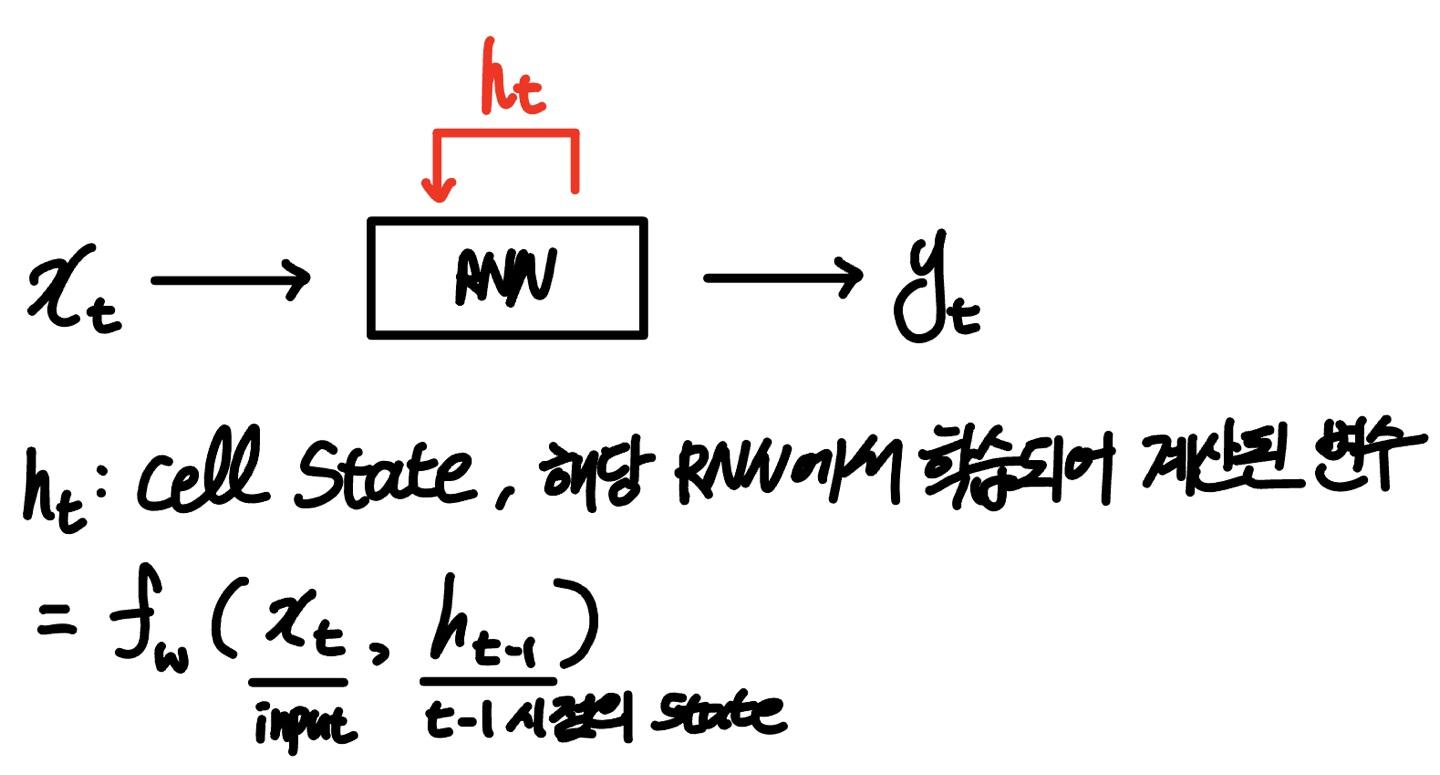 hₜ
xₜ → RNN → yₜ
hₜ: cell state, 해당 RNN에서 학습되어 계산된 변수
= f_w (xₜ, hₜ₋₁)
input t-1 시점의 state